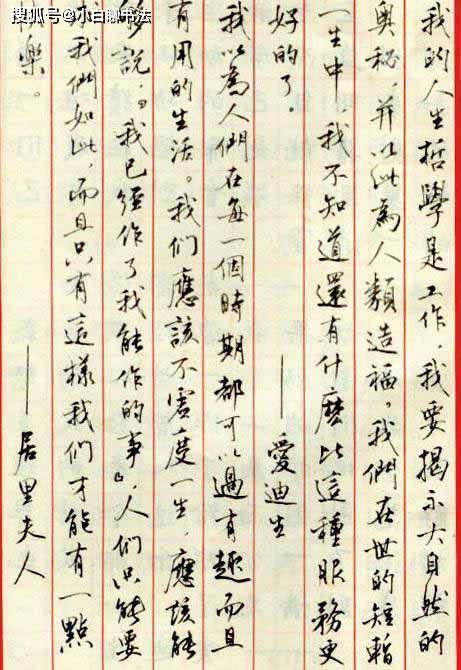 搜狐号@小白聊书法
我的人生哲學是工作，我要揭示大自然的
奥秘，并以此為人類造福。我們在世的短暫
一生中，我不知道還有什麽比這種服務更
好的了。——愛迪生
我以為人們在每一個時期都可以過有趣而且
有用的生活。我们應該不虚度一生，應該能
夠說，“我已經作了我能作的事”，人们只能要
求我們如此，而且只有這樣我们才能有一點
樂。——居里夫人